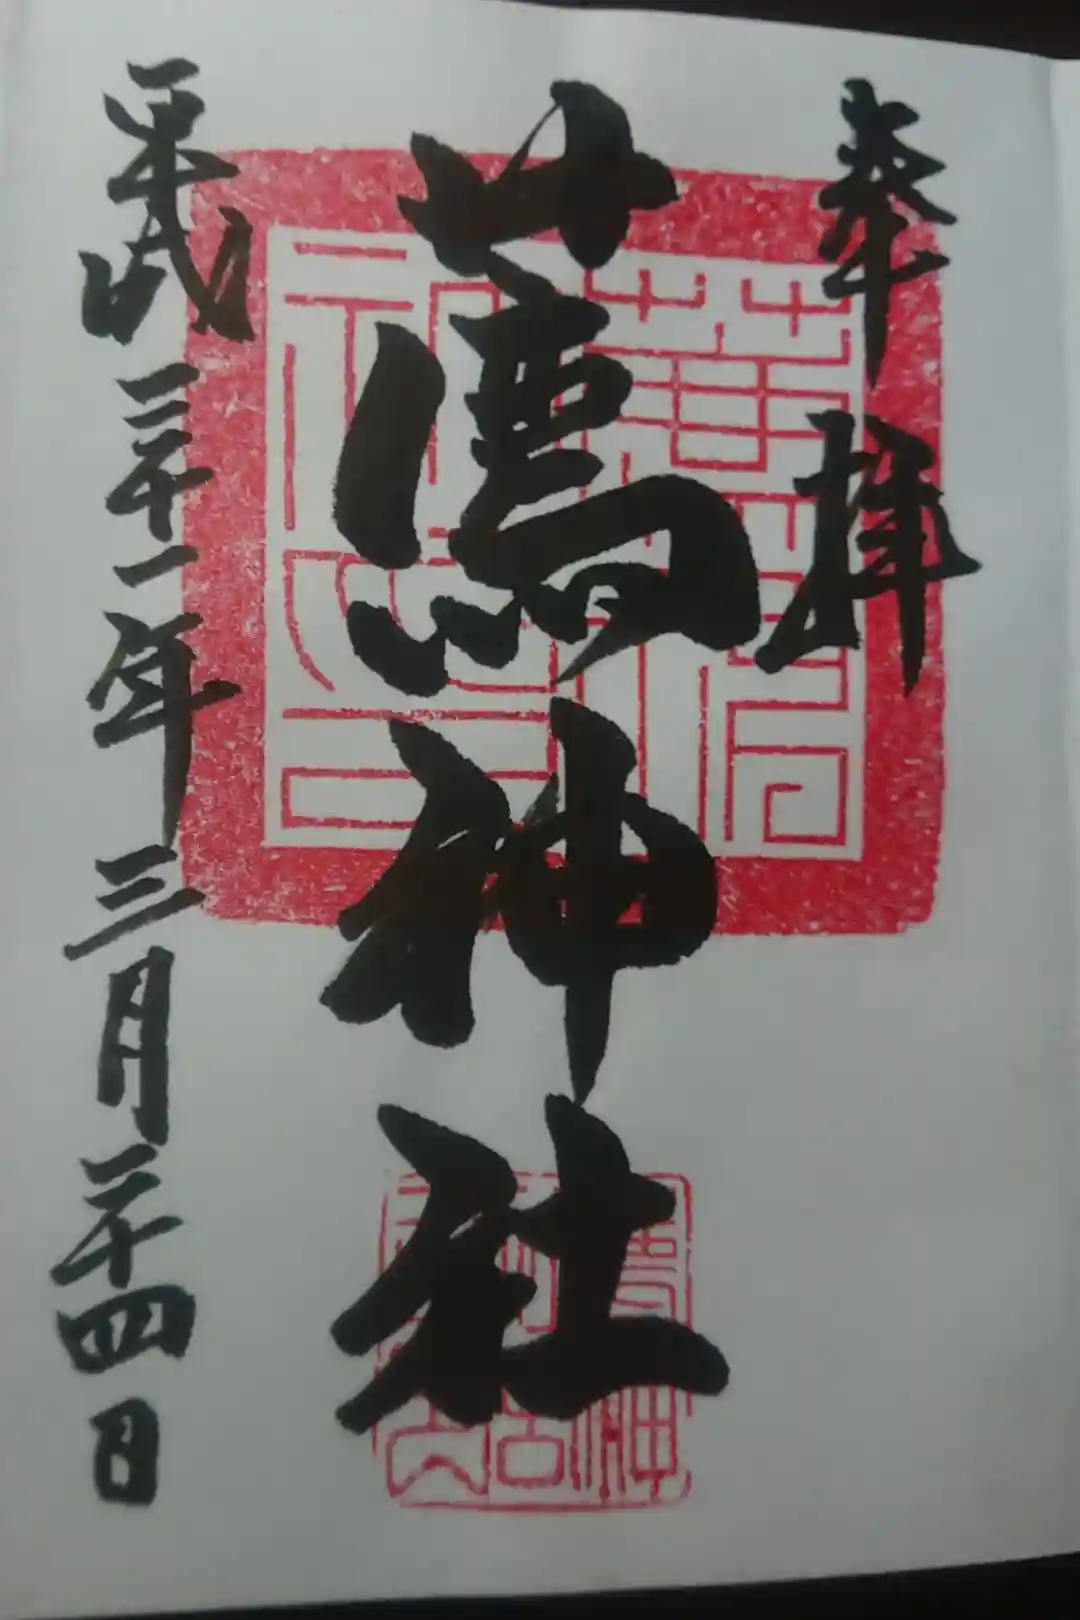 奉拝
薦神社
平成三十一年三月二十四日